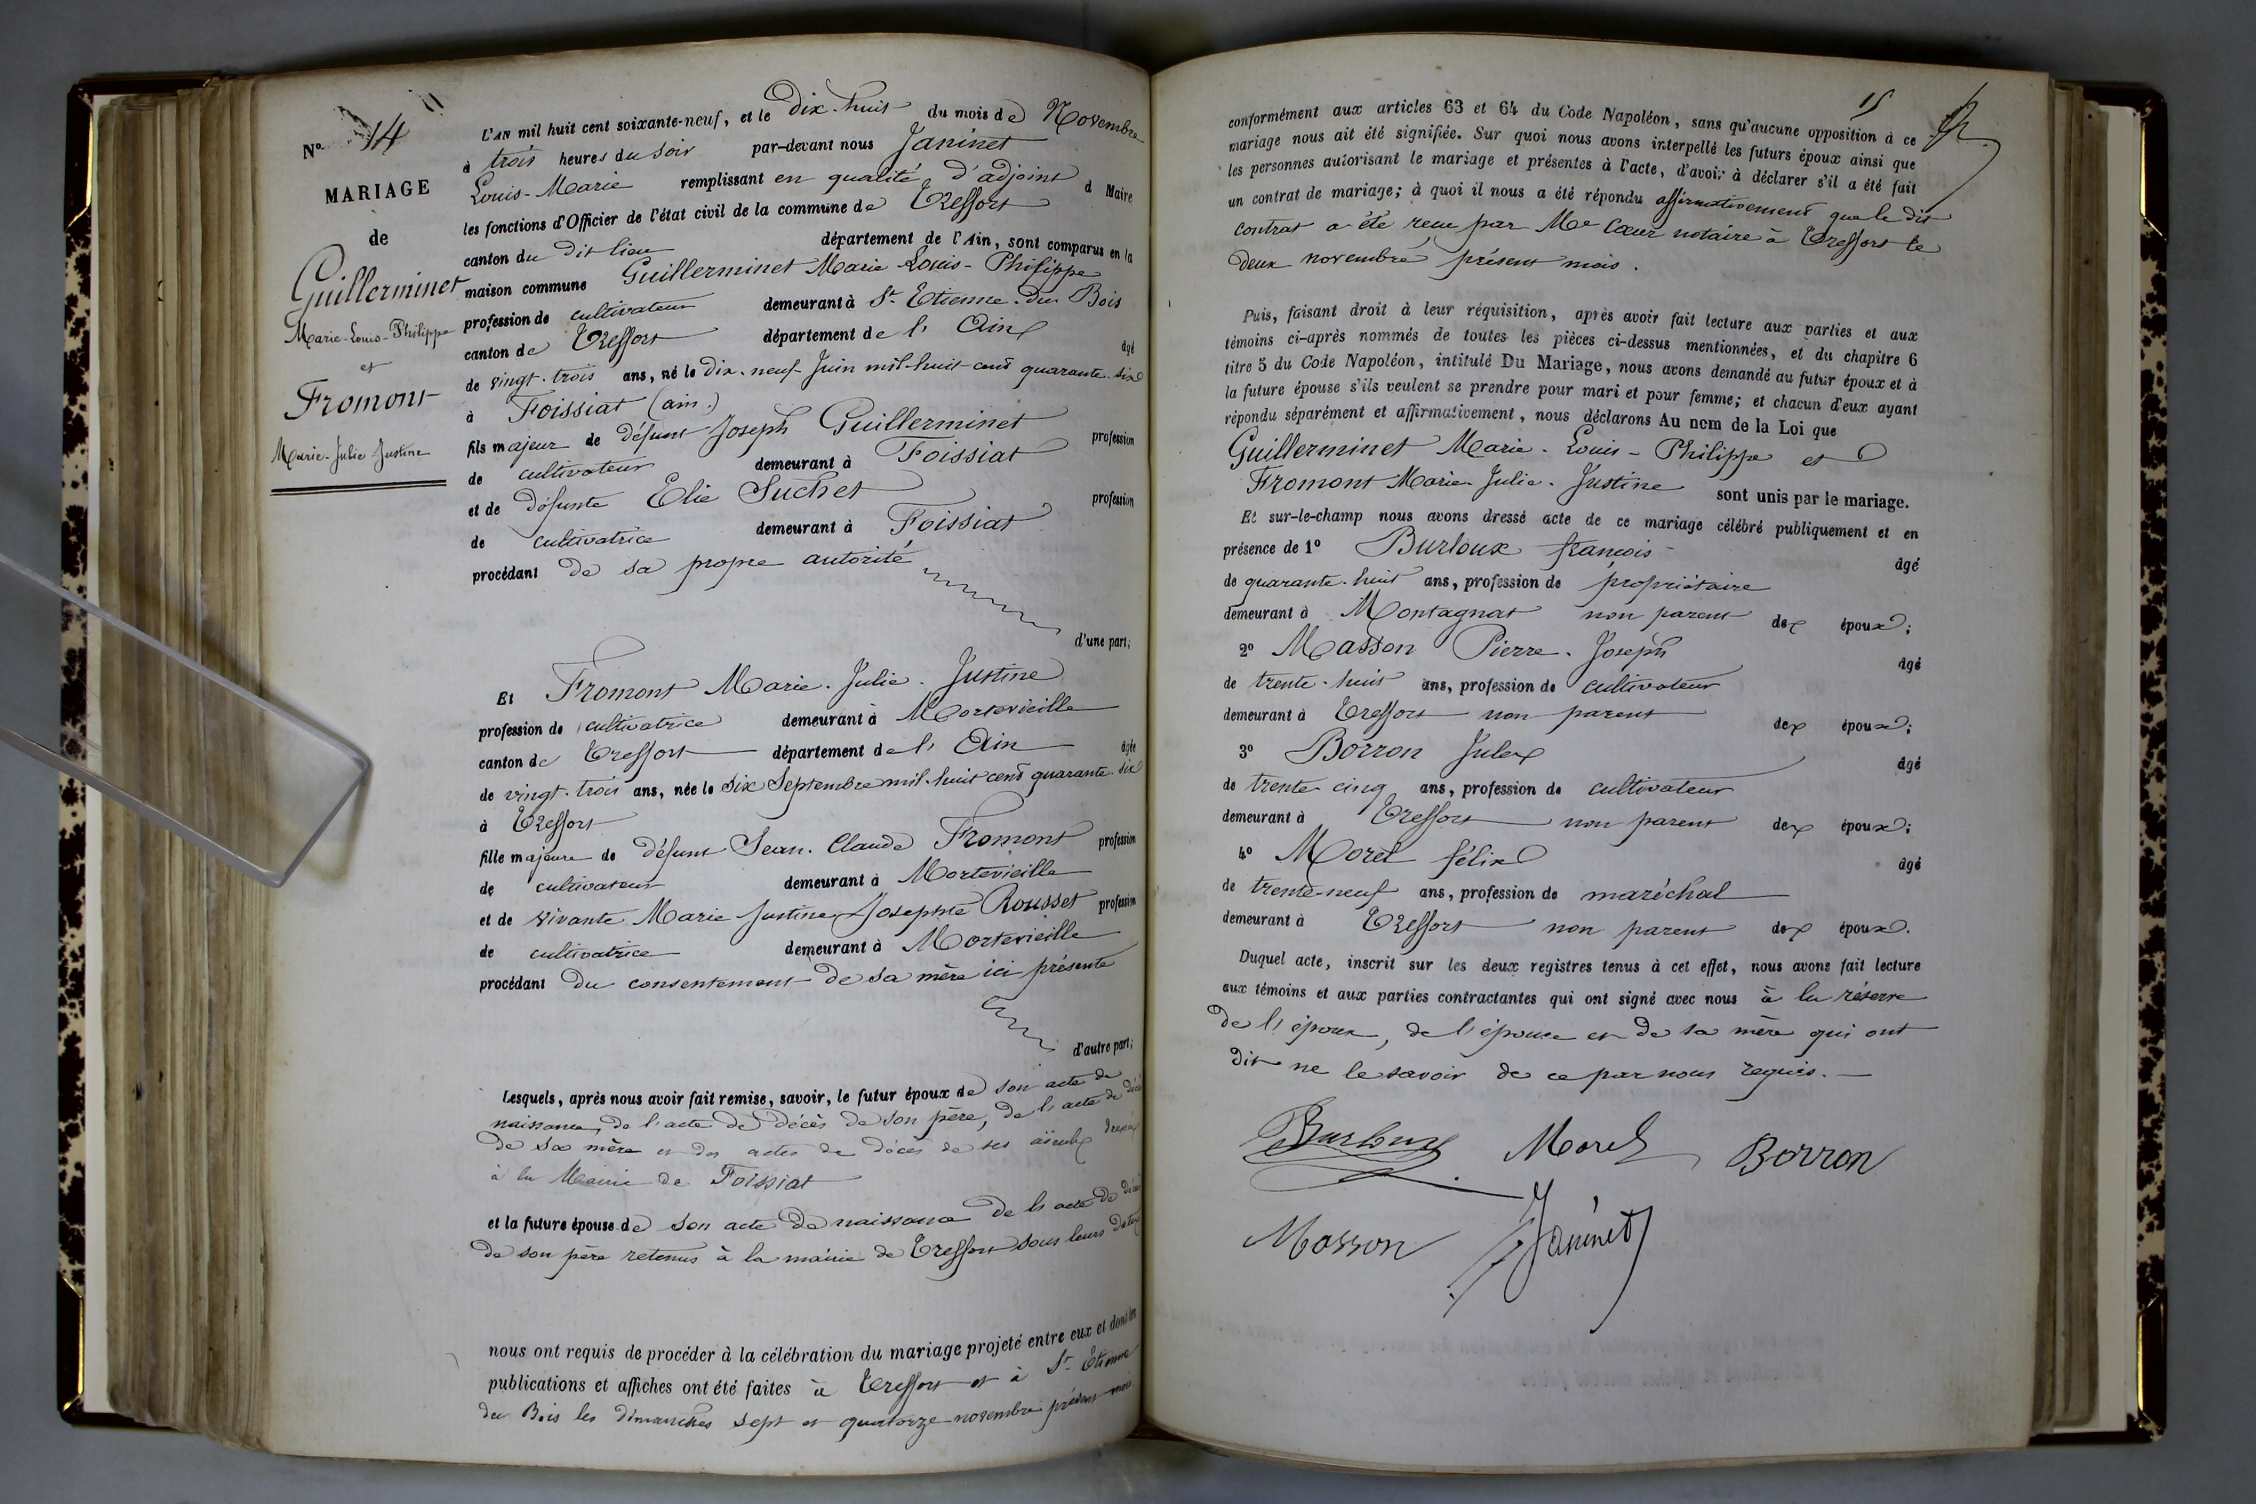 N° 14
MARIAGE
de
Guillerminet
Marie-Louis-Philippe
et
Fromont
Marie-Julie Justine
L'AN mil huit cent soixante-neuf, et le dix-huit du mois de Novembre
à trois heures du soir par-devant nous Janinet
Louis-Marie remplissant en qualité d'adjoint d Maire
les fonctions d'Officier de l'état civil de la commune de Treffort
canton du dit lieu département de l'Ain, sont comparus en la
maison commune Guillerminet Marie-Louis-Philippe
profession de cultivateur demeurant à St Etienne-du Bois
canton de Treffort département de l'Ain âgé
de vingt-trois ans, né le dix-neuf Juin mil-huit cent quarante-six
à Foissiat (ain)
fils majeur de défunt Joseph Guillerminet profession
de cultivateur demeurant à Foissiat
et de défunte Elie Suchet profession
de cultivatrice demeurant à Foissiat
procédant de sa propre autorité
d'une part;
Et Fromont Marie-Julie-Justine
profession de cultivatrice demeurant à Mortevieille
canton de Treffort département de l'Ain âgée
de vingt-trois ans, née le six Septembre mil-huit cent quarante-six
à Treffort
fille majeure de défunt Jean-Claude Fromont profession
de cultivateur demeurant à Mortevieille
et de vivante Marie Justine Josephte Rousset profession
de cultivatrice demeurant à Mortevieille
procédant du consentement de sa mère ici présente
d'autre part;
Lesquels, après nous avoir fait remise, savoir, le futur époux de son acte de
naissance, de l'acte de décès de son père, de l'acte de décès
de sa mère et des actes de décès de ses aïeulx dressés
à la Mairie de Foissiat
et la future épouse de son acte de naissance de l'acte de décès
de son père retenus à la mairie de Treffort sous leurs dates
nous ont requis de procéder à la célébration du mariage projeté entre eux et dont les
publications et affiches ont été faites à Treffort et à St Etienne
du Bois les dimanches sept et quatorze novembre présent mois
15
conformément aux articles 63 et 64 du Code Napoléon, sans qu'aucune opposition à ce
mariage nous ait été signifiée. Sur quoi nous avons interpellé les futurs époux ainsi que
les personnes autorisant le mariage et présentes à l'acte, d'avoir à déclarer s'il a été fait
un contrat de mariage; à quoi il nous a été répondu affirmativement que le dit
contrat a été reçu par Me Cœur notaire à Treffort le
deux novembre présent mois.
Puis, faisant droit à leur réquisition, après avoir fait lecture aux parties et aux
témoins ci-après nommés de toutes les pièces ci-dessus mentionnées, et du chapitre 6
titre 5 du Code Napoléon, intitulé Du Mariage, nous avons demandé au futur époux et à
la future épouse s'ils veulent se prendre pour mari et pour femme; et chacun d'eux ayant
répondu séparément et affirmativement, nous déclarons Au nom de la Loi que
Guillerminet Marie-Louis-Philippe et
Fromont Marie-Julie-Justine sont unis par le mariage.
Et sur-le-champ nous avons dressé acte de ce mariage célébré publiquement et en
présence de 1° Burloux françois âgé
de quarante-huit ans, profession de propriétaire
demeurant à Montagnat non parent des époux;
2° Masson Pierre-Joseph âgé
de trente-huit ans, profession de cultivateur
demeurant à Treffort non parent des époux;
3° Borron Jules âgé
de trente cinq ans, profession de cultivateur
demeurant à Treffort non parent des époux;
4° Morel félix âgé
de trente-neuf ans, profession de maréchal
demeurant à Treffort non parent des époux.
Duquel acte, inscrit sur les deux registres tenus à cet effet, nous avons fait lecture
aux témoins et aux parties contractantes qui ont signé avec nous à la réserve
de l'époux, de l'épouse et de sa mère qui ont
dit ne le savoir de ce par nous requis.
Burloux Morel Borron
Masson Janinet